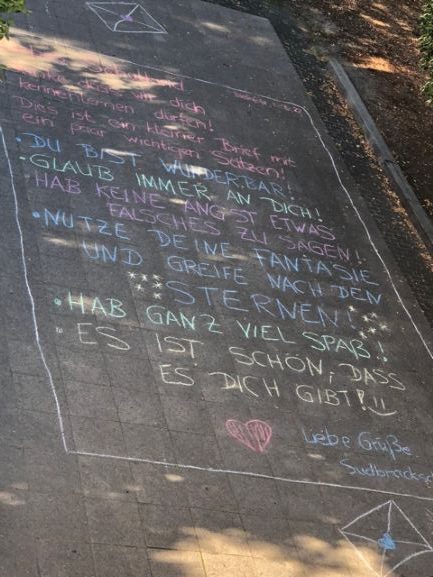 dich
kennenlernen dürfen!
Dies ist ein kleiner Brief mit
ein paar wichtigen Sätzen!
• DU BIST WUNDERBAR!
• GLAUB IMMER AN DICH!
• HAB KEINE ANGST ETWAS
FALSCHES ZU SAGEN!
• NUTZE DEINE FANTASIE
UND GREIFE NACH DEN
STERNEN!
• HAB GANZ VIEL SPAß!
• ES IST SCHÖN, DASS
ES DICH GIBT!
Liebe Grüße